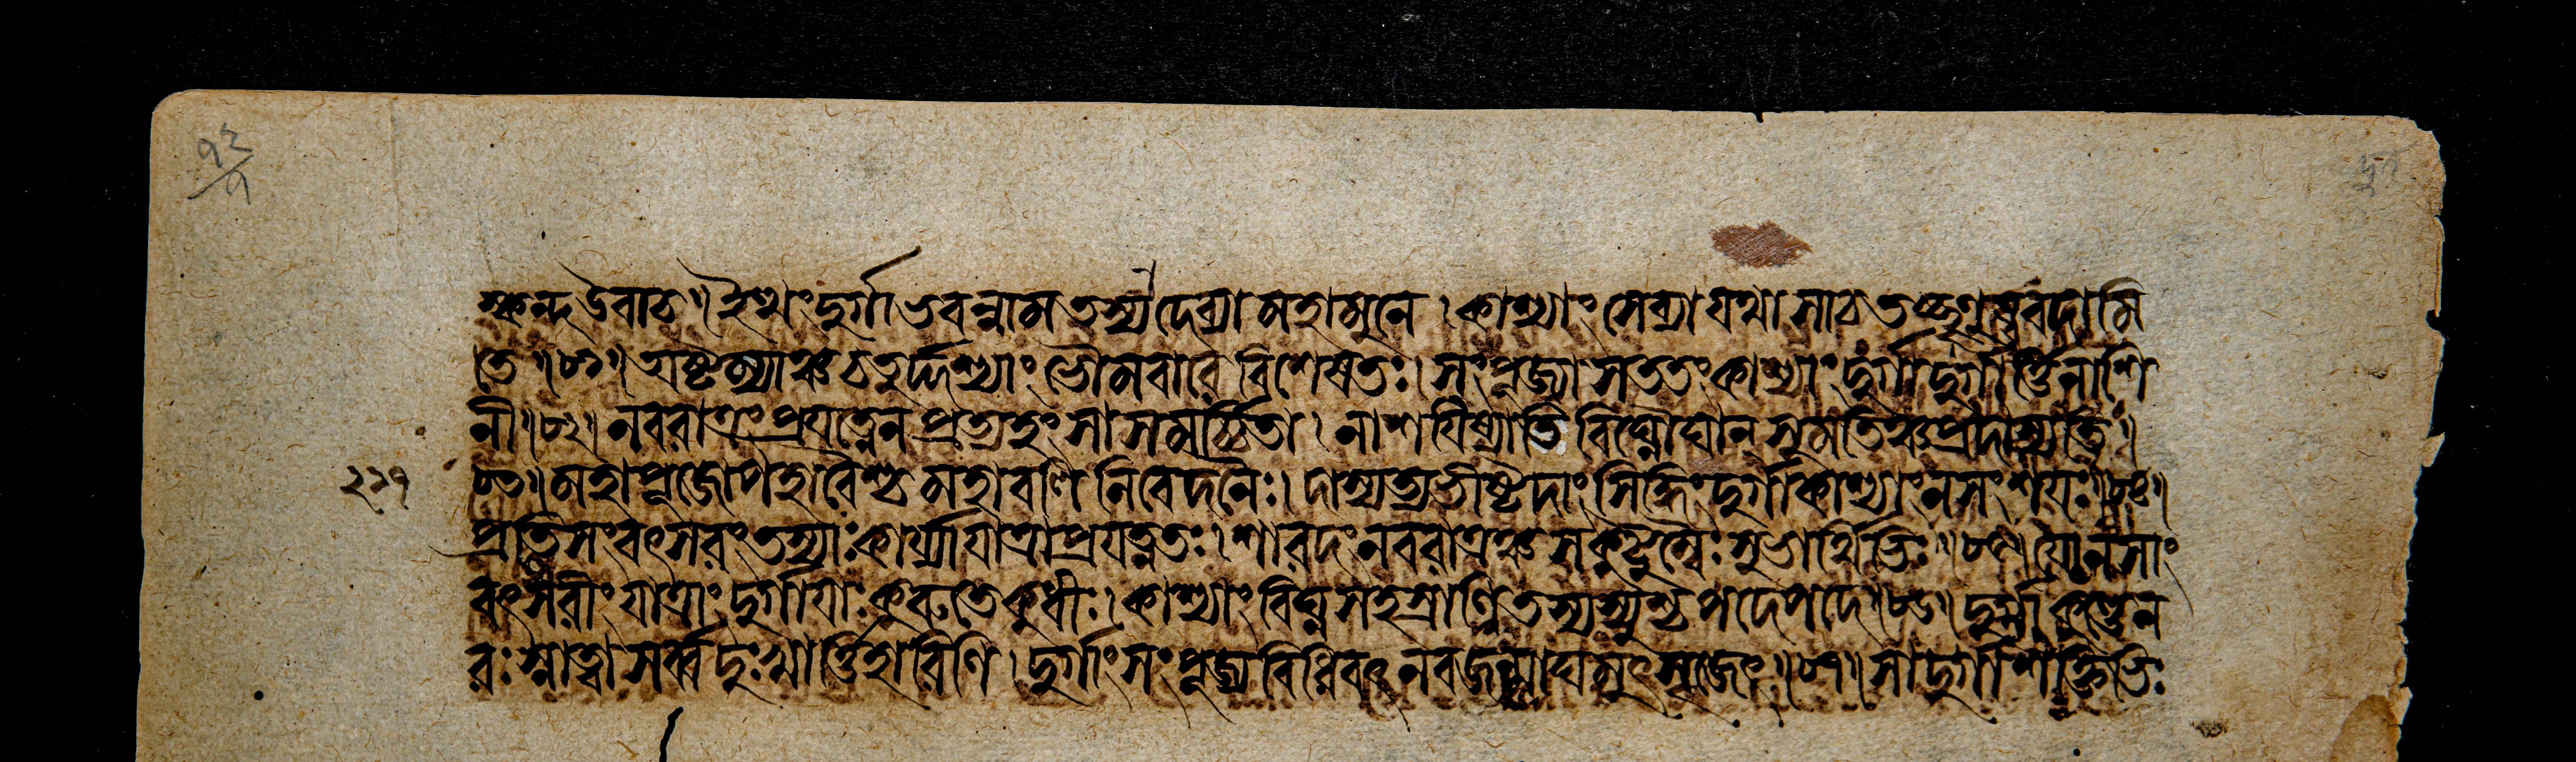 স্কন্দ উবাচ॥ ইত্থং দুর্গাভবন্নাম তস্যা দেব্যা মহামুনে। কাশ্যাং সেব্যা যথা সা চ তচ্ছৃণুষ্ব বদামি
তে॥৮১॥ অষ্টম্যাঞ্চ চতুর্দ্দশ্যাং ভৌমবারে বিশেষতঃ। সংপূজ্যা সততং কাশ্যাং দুর্গা দুর্গার্ত্তিনাশি
নী॥৮২॥ নবরাত্রং প্রযত্নেন প্রত্যহং সা সমর্চ্চিতা। নাশযিষ্যতি বিঘ্নৌঘান্ সুমতিঞ্চ প্রদাস্যতি॥
২২৭
৮৩॥ মহাপূজোপহারৈশ্চ মহাবলিনিবেদনৈঃ। দাস্যত্যভীষ্টদাং সিদ্ধিং দুর্গা কাশ্যাং ন সংশযঃ॥৮৪॥
প্রতিসংবৎসরং তস্যাঃ কার্য্যা যাত্রা প্রযত্নতঃ। শারদং নবরাত্রঞ্চ সকুটুম্বৈঃ শুভার্থিভিঃ॥৮৫॥ যো ন সাং
বৎসরীং যাত্রাং দুর্গাযাঃ কুরুতে কুধীঃ। কাশ্যাং বিঘ্নসহস্রাণি তস্য স্যুশ্চ পদে পদে॥৮৬॥ দুর্গাকুণ্ডে ন
রঃ স্নাত্বা সর্ব্বদুঃখার্ত্তিহারিণি। দুর্গাং সংপূজ্য বিধিবৎ নবজন্মাঘমুৎসৃজেৎ॥৮৭॥ সা দুর্গা শক্তিভিঃ